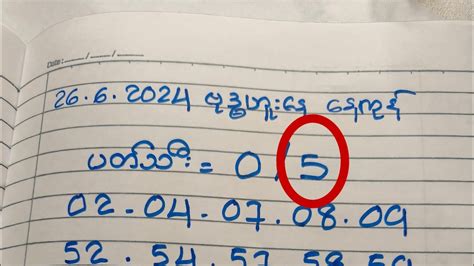 Date: / /
26.6.2024 ဗုဒ္ဓဟူးနေ့ နေ့ကုန်
ပတ်သီး = 0/5
02.04.07.08.09
52.54.57.58.59